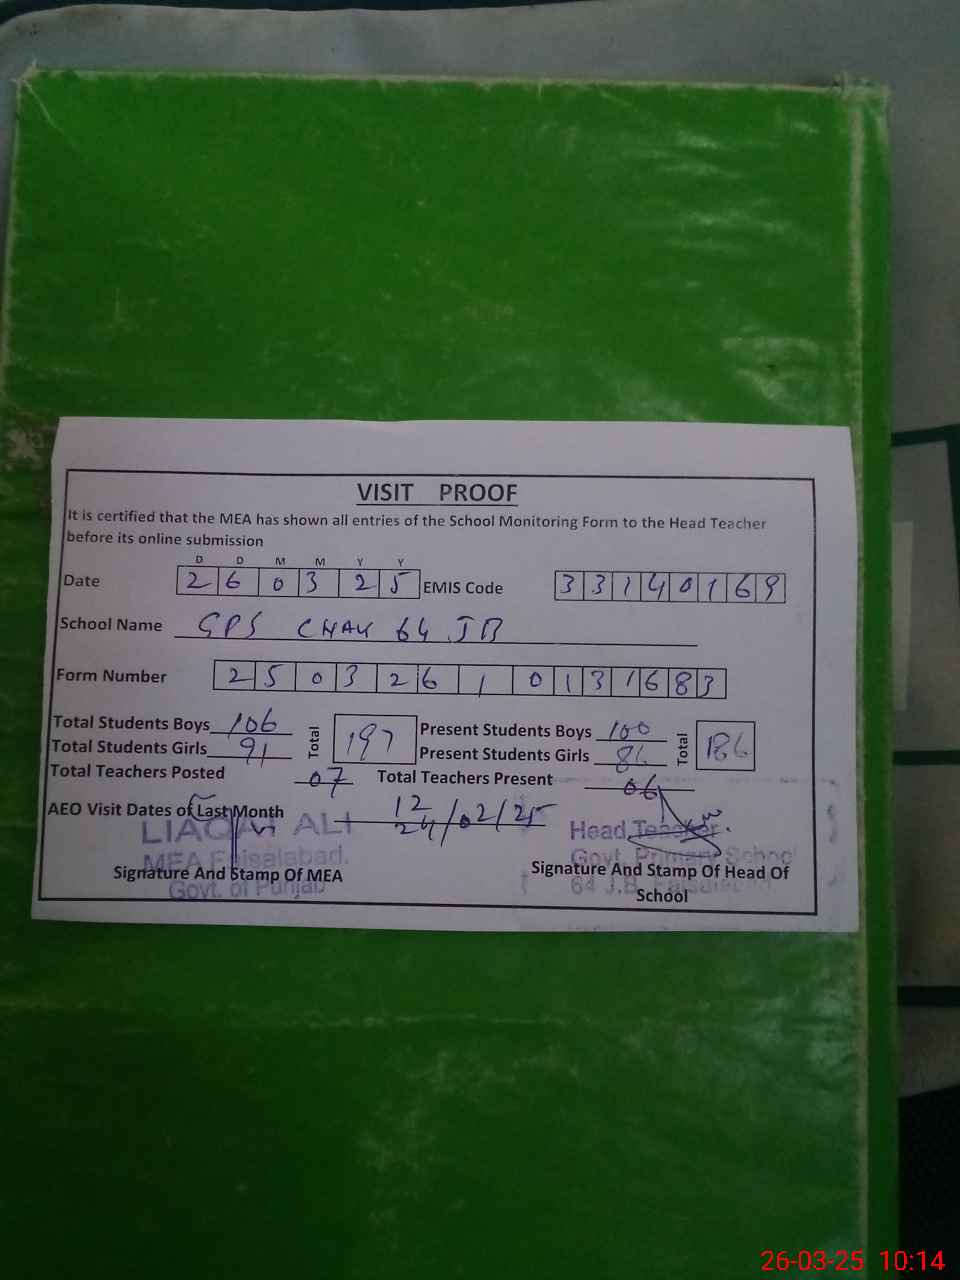 VISIT PROOF
It is certified that the MEA has shown all entries of the School Monitoring Form to the Head Teacher
before its online submission
D D M M Y Y
Date 2 6 0 3 2 5 EMIS Code 3 3 1 4 0 1 6 9
School Name GPS CHAK 64 JB
Form Number 2 5 0 3 2 6 1 0 1 3 1 6 8 3
Total Students Boys 106 Total 197 Present Students Boys 100 Total 186
Total Students Girls 91 Present Students Girls 86
Total Teachers Posted 07 Total Teachers Present 06
AEO Visit Dates of Last Month 12
24/02/25
LIAQAT ALI
MEA Faisalabad.
Govt. of Punjab
Signature And Stamp Of MEA
Head Teacher
Govt. Primary School
64 J.B. Faisalabad
Signature And Stamp Of Head Of
School
26-03-25 10:14